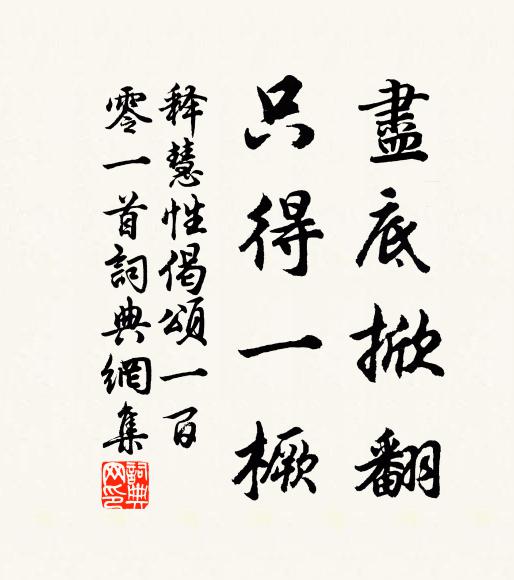 盡底掀翻
只得一橛
釋慧性偈頌一百
零一首詞典網集
詞典網印